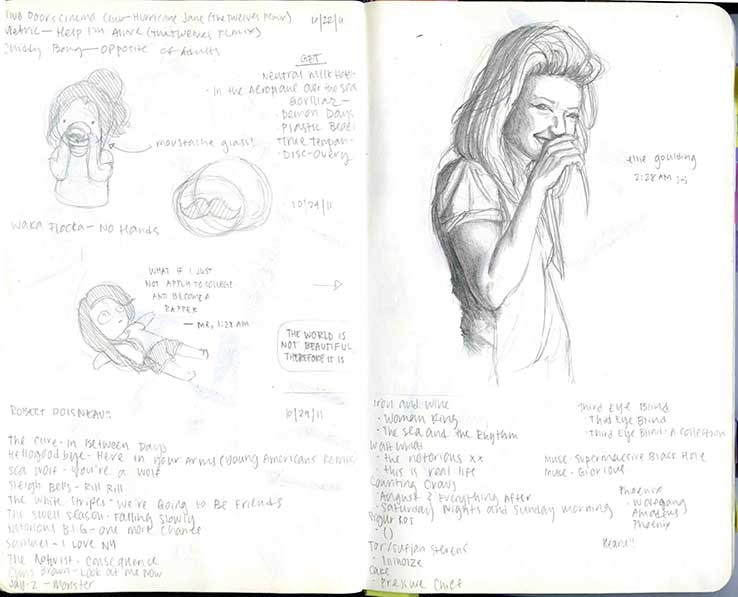 Doors Cinema Club - Hurricane Jane (The Twelves Remix)
10/22/11
Metric - Help I'm Alive (The Twelves Remix)
Chiddy Bang - Opposite of Adults
GET
Neutral Milk Hotel
· In the Aeroplane over the sea
Gorillaz -
· Demon Days
· Plastic Beach
· Disc-Overy
moustache glass!
10/24/11
Waka Flocka - No Hands
WHAT IF I JUST
NOT APPLY TO COLLEGE
AND BECOME A
RAPPER
- ME, 1:28 AM
THE WORLD IS
NOT BEAUTIFUL
THEREFORE IT IS
ROBERT DOISNEAU!!
10/29/11
The Cure - In Between Days
Hellogoodbye - Here in your Arms (Young Americans Remix
Sea Wolf - You're a Wolf
Sleigh Bells - Rill Rill
The White Stripes - We're Going to Be Friends
The Swell Season - Falling Slowly
Notorious B.I.G - One More Chance
- I Love NY
The Notwist - Consequence
Chris Brown - Look at Me Now
Jay-Z - Monster
ellie goulding
2:28 AM
Iron and Wine
· Woman King
· The Sea and the Rhythm
Wait What
· the notorious xx
· this is real life
Counting Crows
· August & Everything After
· Saturday Nights and Sunday Morning
Sigur Ros
· ()
Tor/Sufjan Stevens
· Illinoize
Cake
· Pressure Chief
Third Eye Blind
· Third Eye Blind
· Third Eye Blind - A Collection
Muse - Supermassive Black Hole
Muse -
Phoenix
· Wolfgang
Amadeus
Phoenix
Keane!!